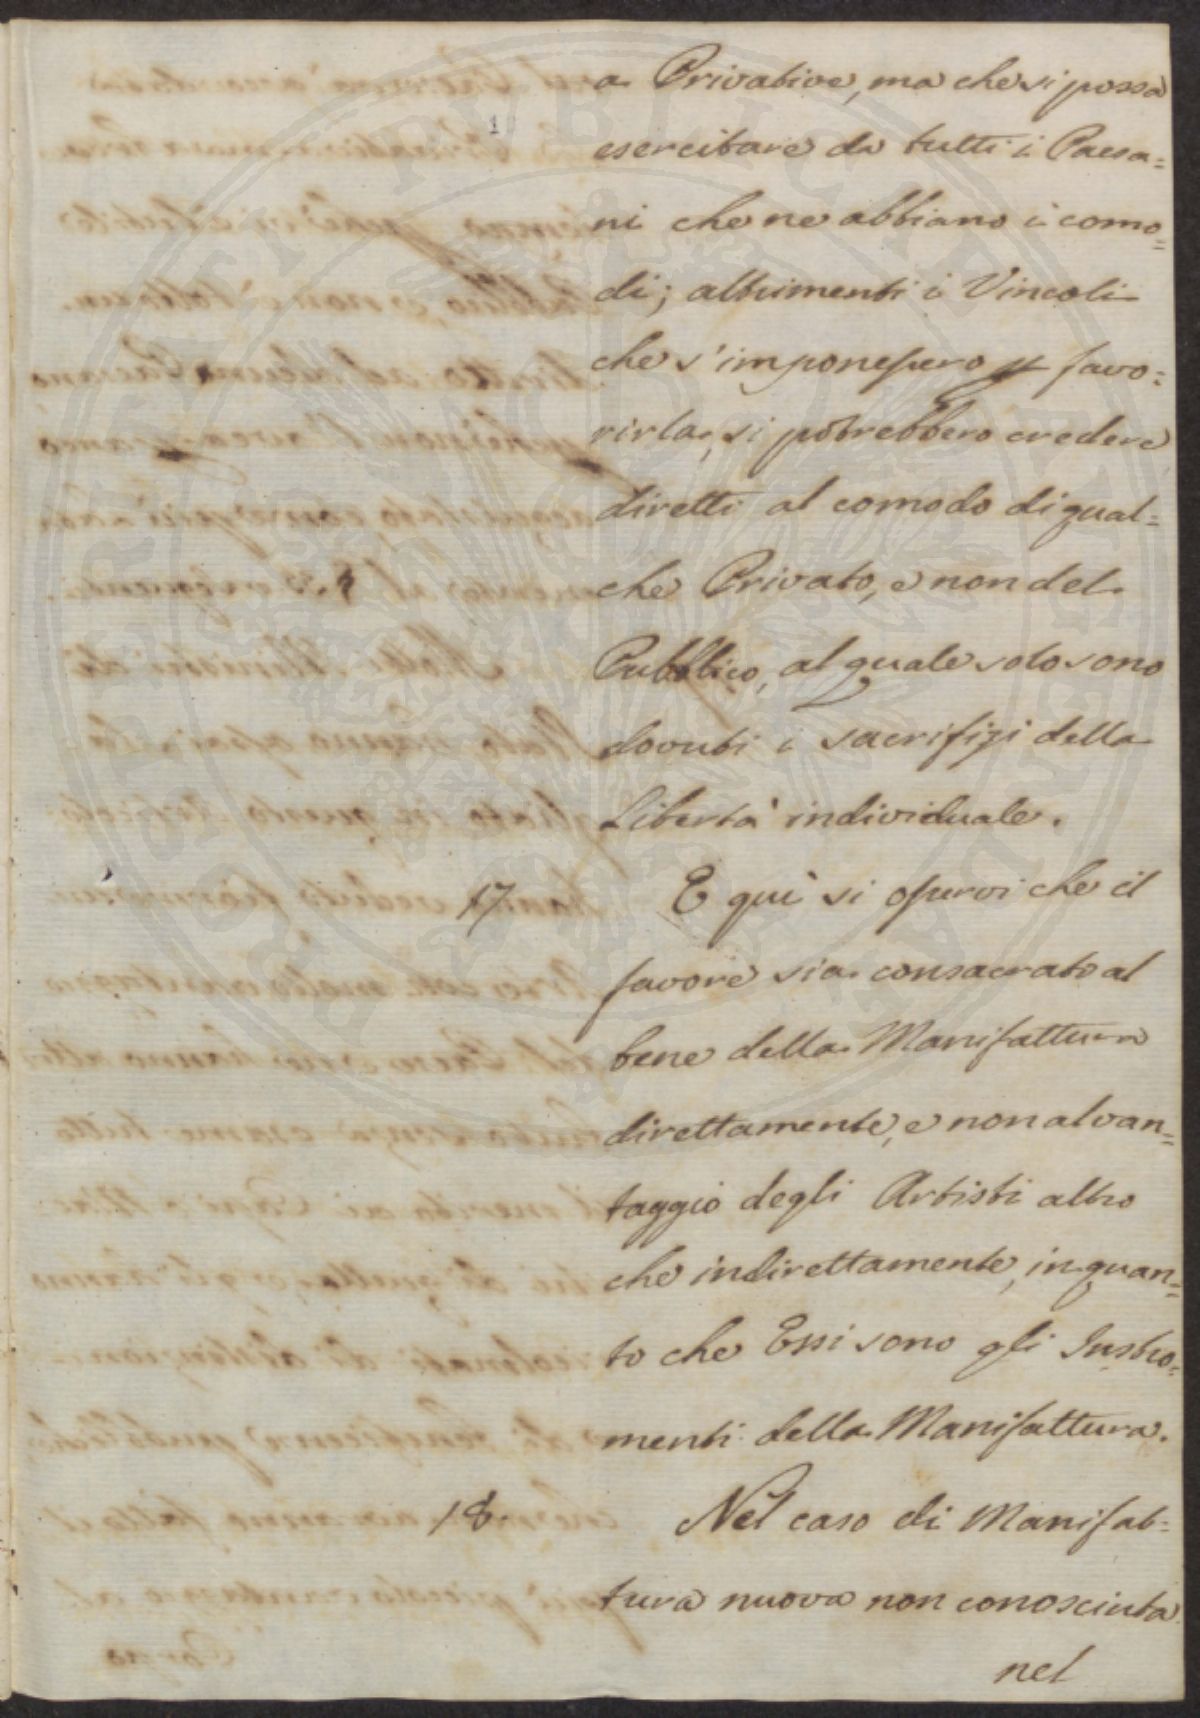 a Privative, ma che si possa
esercitare da tutti i Paesa=
ni che ne abbiano i como=
di; altrimenti i Vincoli
che s'imponessero p favo=
rirla, si potrebbero credere
diretti al comodo di qual=
che Privato, e non del
Pubblico, al quale solo sono
dovuti i sacrifizj della
Libertà individuale.
17 E quì si osservi che il
favore sia consacrato al
bene della Manifattura
direttamente, e non al van=
taggio degli Artisti altro
che indirettamente, in quan=
to che Essi sono gli Instro=
menti della Manifattura.
18. Nel caso di Manifat=
tura nuova non conosciuta
nel